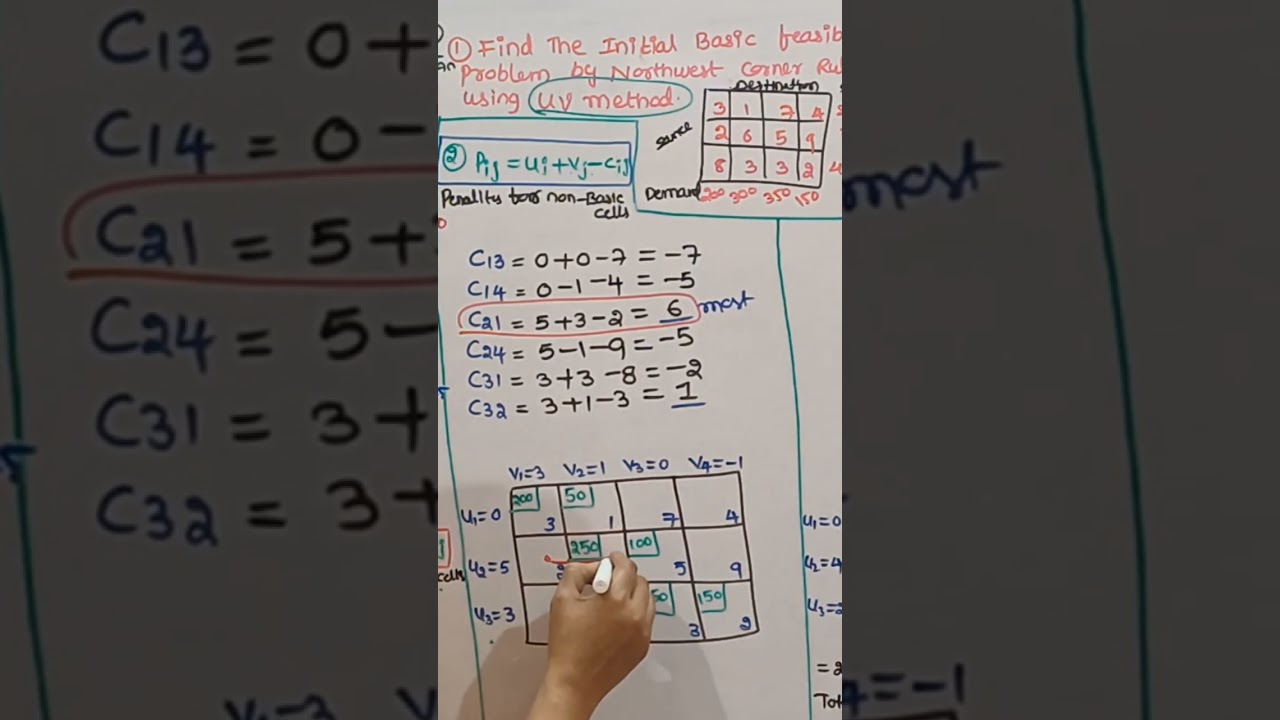 ① Find The Initial Basic feasib
Problem by Northwest Corner Ru
using UV method.
Destination
3 1 7 4
2 6 5 9
8 3 3 2
Demand 200 300 350 150
② Pij = ui + vj - cij
Penality for non-Basic
cells
C13 = 0+0-7 = -7
C14 = 0-1-4 = -5
C21 = 5+3-2 = 6 most
C24 = 5-1-9 = -5
C31 = 3+3-8 = -2
C32 = 3+1-3 = 1
V1=3 V2=1 V3=0 V4=-1
U1=0 200 3 50 1 7 4
U2=5 250 100 5 9
U3=3 50 3 150 2
U1=0
U2=4
= 2
Tot
C13 = 0+
C14 = 0-
C21 = 5+
C24 = 5-
C31 = 3+
C32 = 3+
most
V4=-1